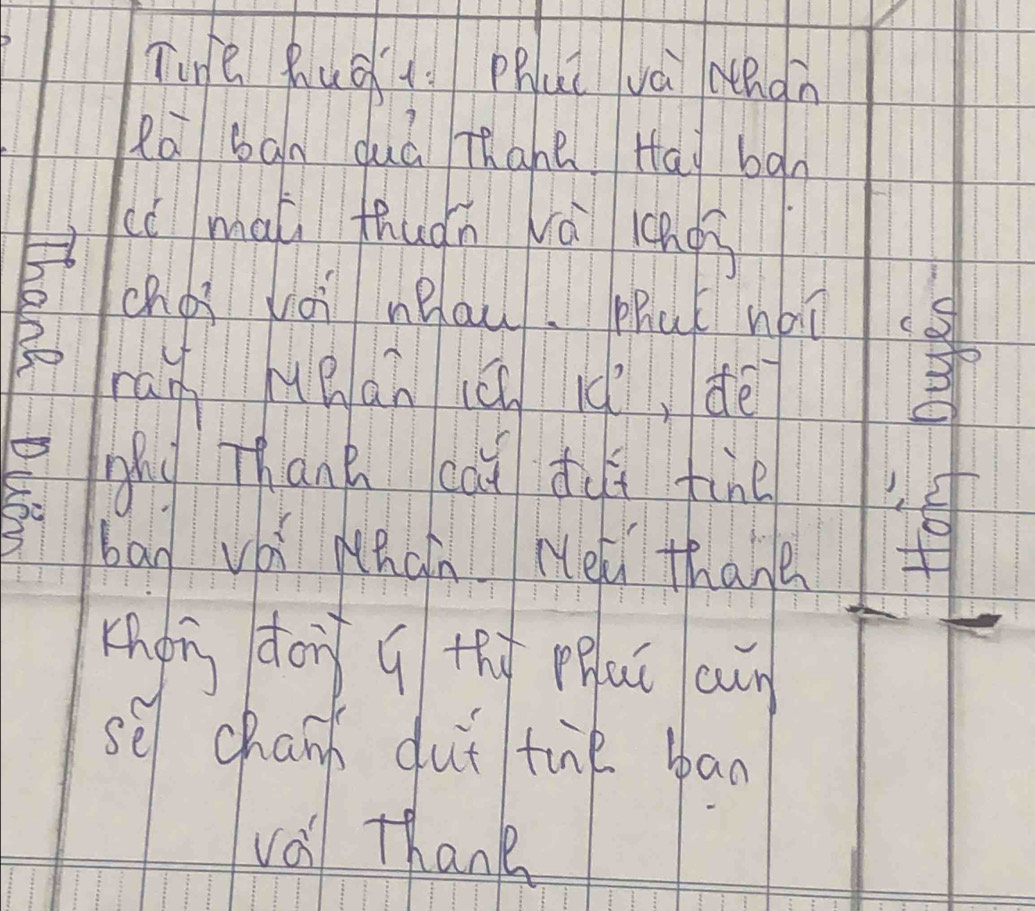 Tình huống 1: Phúc và Nhân
là bạn của Thanh. Hai bạn
có mâu thuẫn và không
chơi với nhau. Phúc nói
rằng Nhân ích kỉ, đề
nghị Thanh cắt đứt tình
bạn với Nhân. Nếu thanh
không đồng ý thì Phúc cũng
sẽ chấm dứt tình bạn
với Thanh
Thanh Duyên
Hồng Duyên